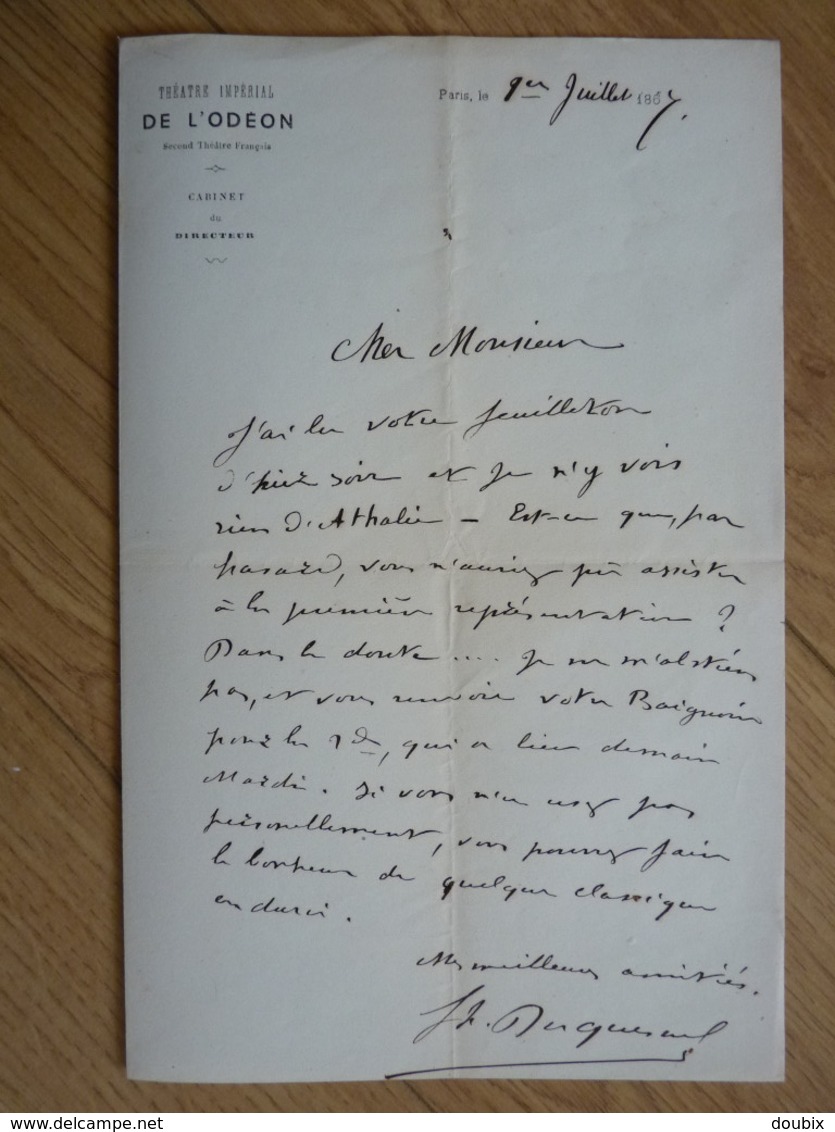 THÉATRE IMPÉRIAL
DE L'ODÉON
Second Théâtre Français
CABINET
du
DIRECTEUR
Paris, le 1er Juillet 1867.
Cher Monsieur
J'ai lu votre feuilleton
d'hier soir et je n'y vois
rien d'Athalie – Est-ce que, par
hasard, vous n'auriez pû assister
à la première représentation ?
Dans le doute .... je ne m'abstiens
pas, et vous renvoie votre Baignoire
pour la 2de, qui a lieu demain
Mardi. Si vous n'en usez pas
personellement, vous pourrez faire
le bonheur de quelque classique
endurci.
Mes meilleures amitiés.
Duquesnel
doubix